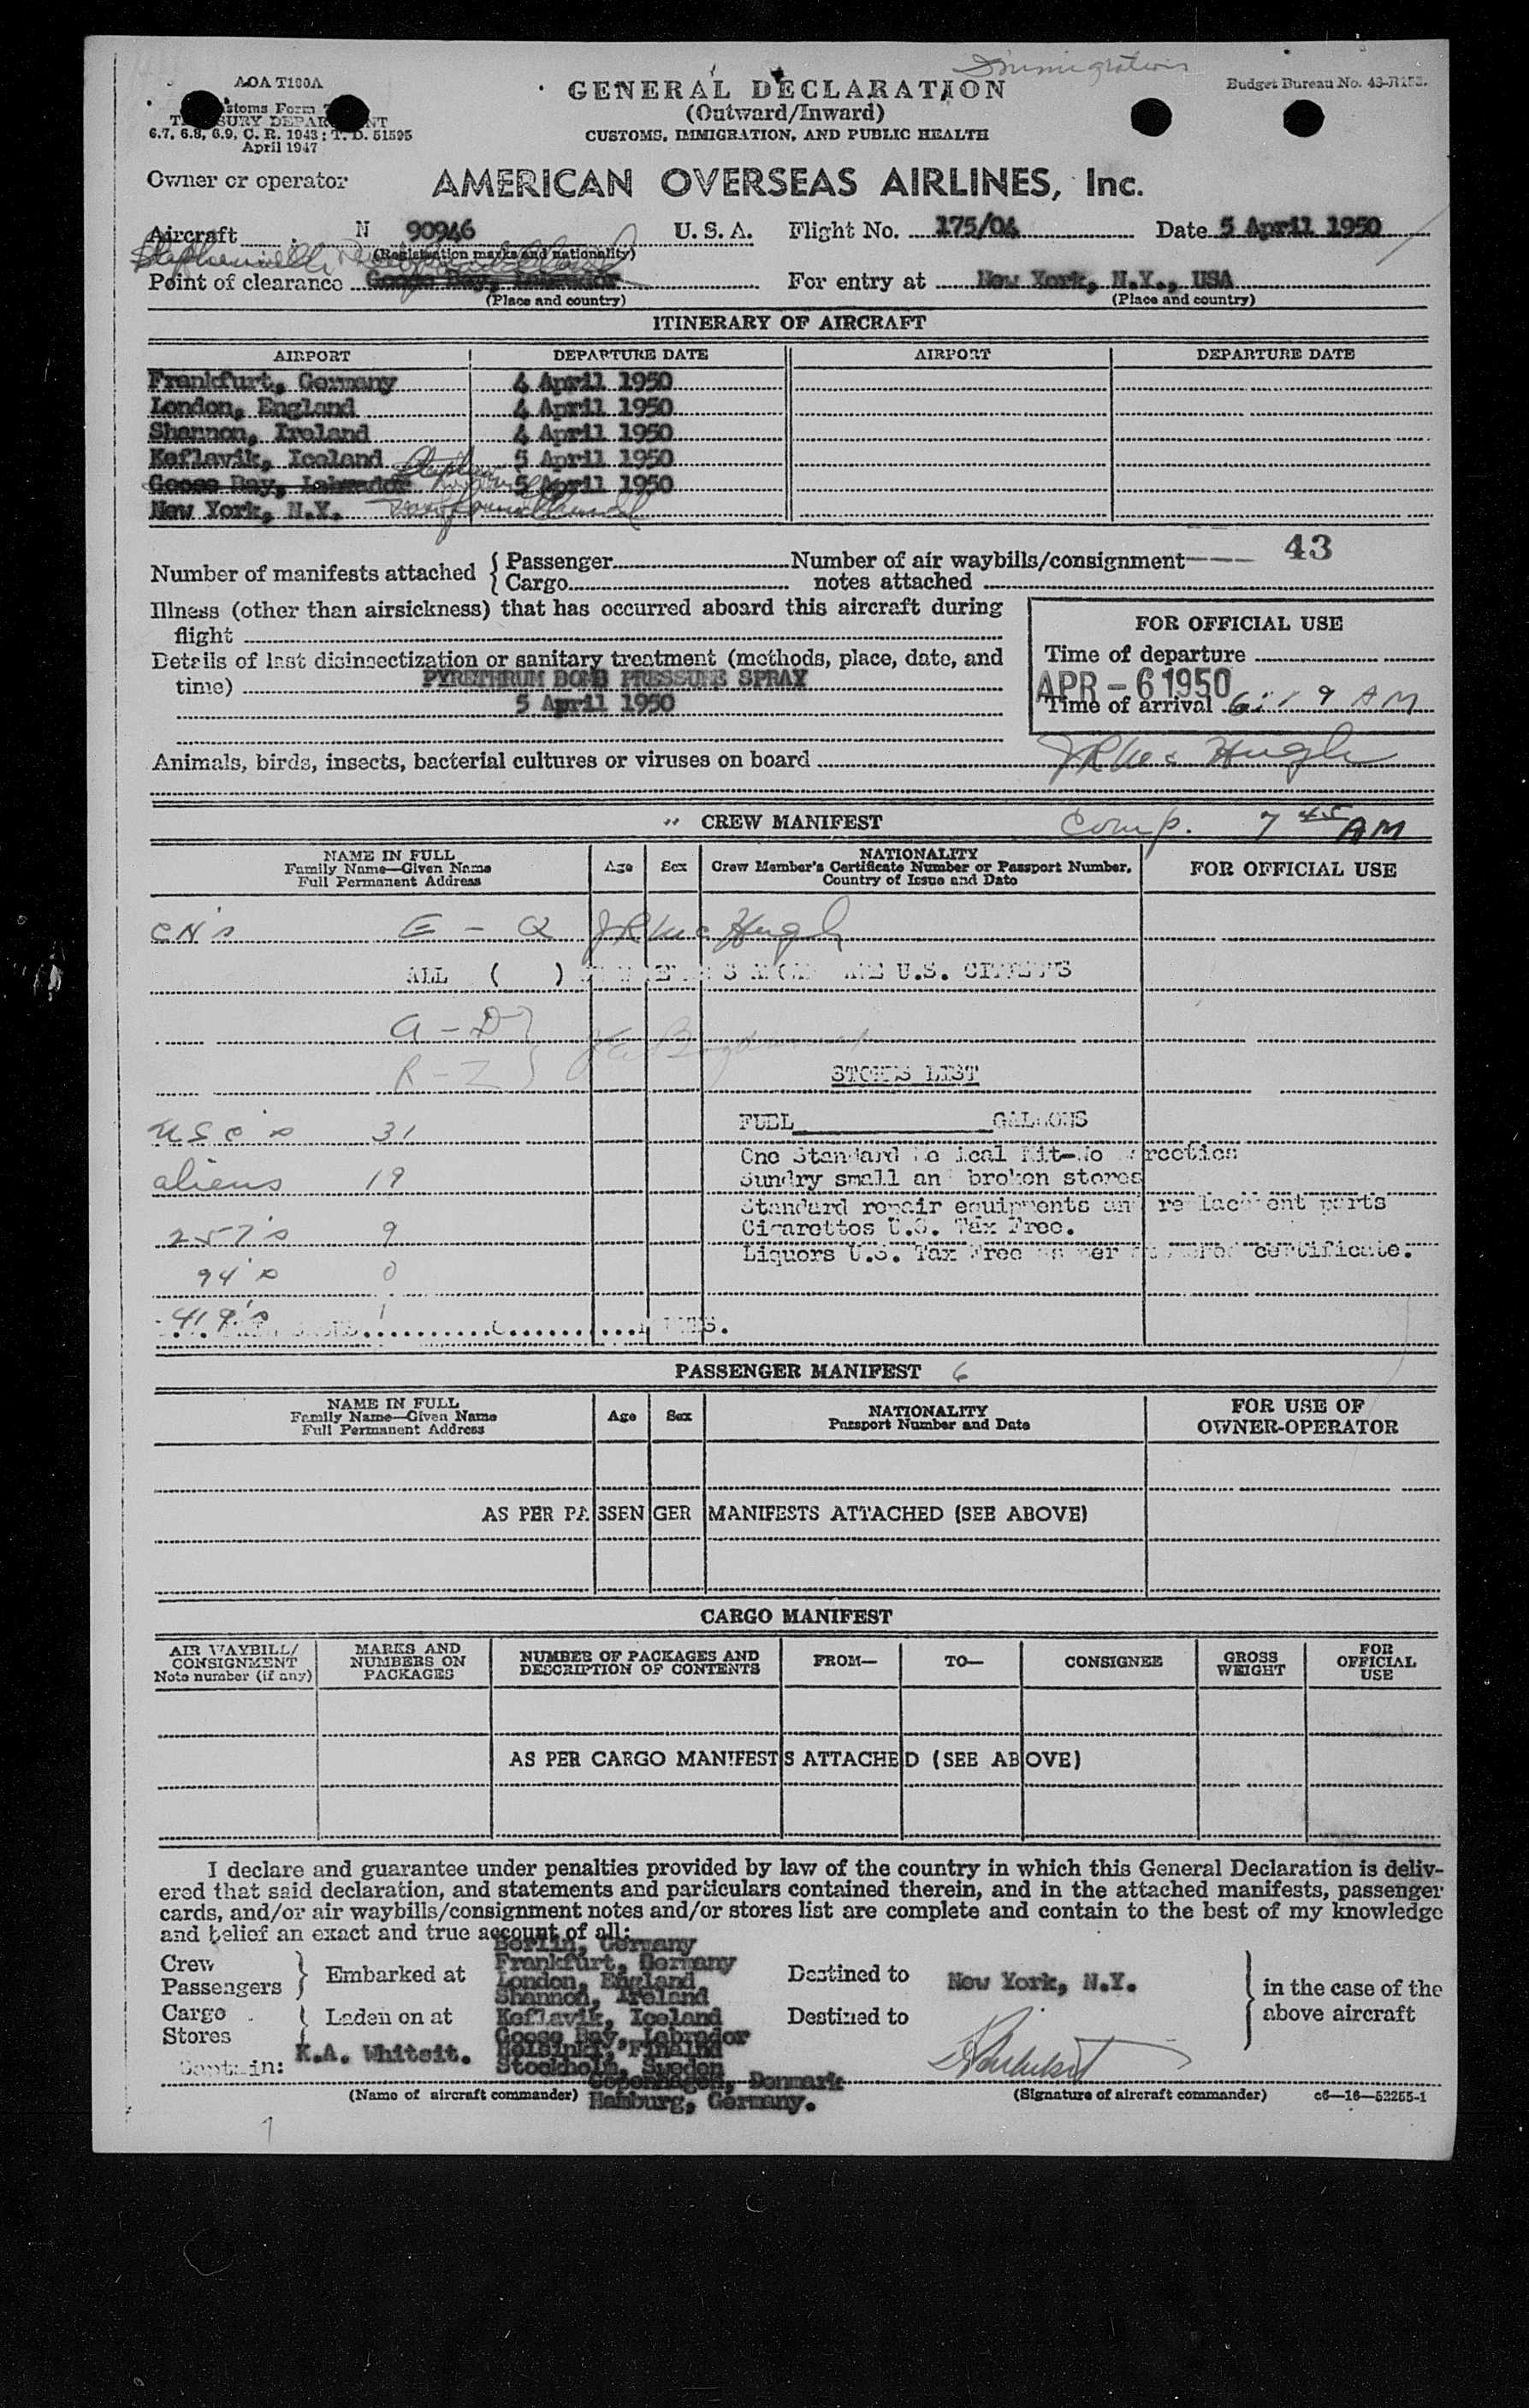 Immigration
AOA T100A
GENERAL DECLARATION
Budget Bureau No. 43-R153.
Customs Form
TREASURY DEPARTMENT
(Outward/Inward)
6.7, 6.8, 6.9, C. R. 1943; T. D. 51595
April 1947
CUSTOMS, IMMIGRATION, AND PUBLIC HEALTH
Owner or operator AMERICAN OVERSEAS AIRLINES, Inc.
Aircraft N 90946 U. S. A. Flight No. 175/04 Date 5 April 1950
(Registration marks and nationality)
Stephenville Newfoundland
Point of clearance Goose Bay, Labrador For entry at New York, N.Y., USA
(Place and country) (Place and country)
ITINERARY OF AIRCRAFT
AIRPORT DEPARTURE DATE AIRPORT DEPARTURE DATE
Frankfurt, Germany 4 April 1950
London, England 4 April 1950
Shannon, Ireland 4 April 1950
Keflavik, Iceland 5 April 1950
Goose Bay, Labrador 5 April 1950
New York, N.Y. Newfoundland
43
Number of manifests attached { Passenger Number of air waybills/consignment
Cargo notes attached
Illness (other than airsickness) that has occurred aboard this aircraft during
flight
FOR OFFICIAL USE
Details of last disinsectization or sanitary treatment (methods, place, date, and
Time of departure
time) PYRETHRUM BOMB PRESSURE SPRAY
APR - 6 1950
5 April 1950
Time of arrival 6:19 AM
Animals, birds, insects, bacterial cultures or viruses on board
CREW MANIFEST
Comp. 7 45 AM
NAME IN FULL
Family Name—Given Name
Full Permanent Address
Age Sex
NATIONALITY
Crew Member's Certificate Number or Passport Number,
Country of Issue and Date
FOR OFFICIAL USE
CN's E - Q
ALL ( ) U.S. CITIZENS
A - D }
R - Z }
STORES LIST
USC's 31
FUEL GALLONS
One Standard Medical Kit-No Narcotics
aliens 19
Sundry small and broken stores
Standard repair equipments and replacement parts
257's 9
Cigarettes U.S. Tax Free.
Liquors U.S. Tax Free as per certificate.
94's 0
419's 1
PASSENGER MANIFEST 6
NAME IN FULL
Family Name—Given Name
Full Permanent Address
Age Sex
NATIONALITY
Passport Number and Date
FOR USE OF
OWNER-OPERATOR
AS PER PASSENGER MANIFESTS ATTACHED (SEE ABOVE)
CARGO MANIFEST
AIR WAYBILL/
CONSIGNMENT
Note number (if any)
MARKS AND
NUMBERS ON
PACKAGES
NUMBER OF PACKAGES AND
DESCRIPTION OF CONTENTS
FROM— TO— CONSIGNEE
GROSS
WEIGHT
FOR
OFFICIAL
USE
AS PER CARGO MANIFESTS ATTACHED (SEE ABOVE)
I declare and guarantee under penalties provided by law of the country in which this General Declaration is deliv-
ered that said declaration, and statements and particulars contained therein, and in the attached manifests, passenger
cards, and/or air waybills/consignment notes and/or stores list are complete and contain to the best of my knowledge
and belief an exact and true account of all:
Berlin, Germany
Crew
Passengers } Embarked at
Frankfurt, Germany
London, England
Shannon, Ireland
Destined to New York, N.Y.
in the case of the
above aircraft
Cargo
Stores { Laden on at
Keflavik, Iceland
Destined to
Goose Bay, Labrador
Helsinki, Finalnd
Captain: K.A. Whitsit.
Stockholm, Sweden
Copenhagen, Denmark
(Name of aircraft commander) Hamburg, Germany. (Signature of aircraft commander) c6—16—52255-1